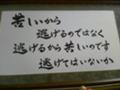 苦しいから
逃げるのではなく
逃げるから苦しいのです
逃げてはいないか